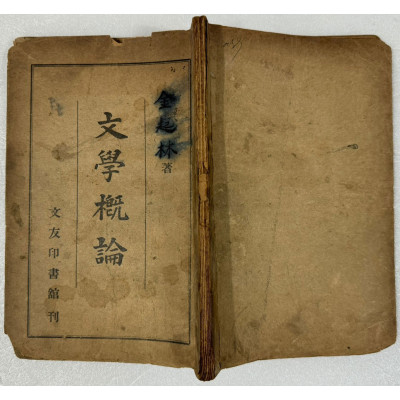 金起林 著
文學槪論
文友印書館 刊